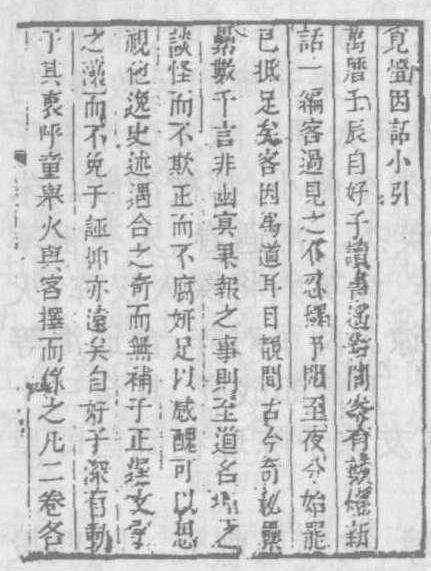 覓燈因話小引
萬曆壬辰自好子讀書遙青閣客有剪燈新
話一編客過見之不忍釋手閱至夜分始罷
已抵足矣客因爲道耳目覩聞古今奇秘累
累數千言非幽冥果報之事則至道名理之
談怪而不欺正而不腐妍足以感醜可以思
視他逸史述遇合之奇而無補于正逞文字
之藻而不免于誣抑亦遠矣自好子深有動
于其衷呼童舉火與客擇而錄之凡二卷各